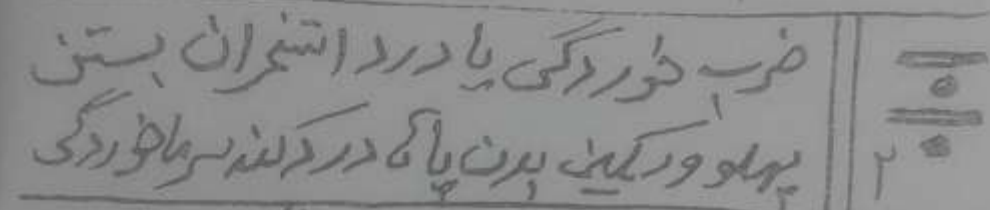 ضرب خوردگی یا درد استخوان بستن
پهلو ورکین بدن پاها درد کند سرماخوردگی
۲